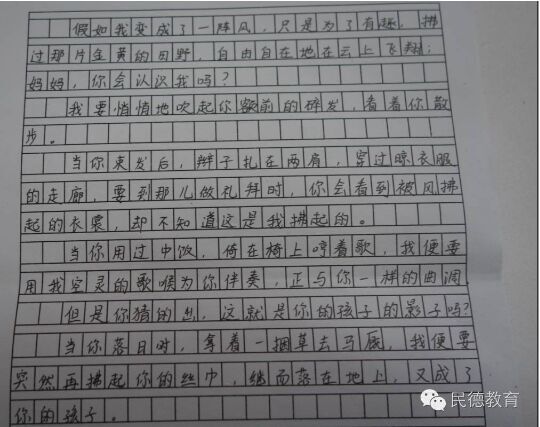 假如我变成了一阵风，只是为了有趣，拂
过那片金黄的田野，自由自在地在云上飞翔；
妈妈，你会认识我吗？
我要悄悄地吹起你额前的碎发，看着你散
步。
当你束发后，辫子扎在两肩，穿过晾衣服
的走廊，要到那儿做礼拜时，你会看到被风拂
起的衣裳，却不知道这是我拂起的。
当你用过中饭，倚在椅上哼着歌，我便要
用我空灵的歌喉为你伴奏，正与你一样的曲调，
但是你猜的出，这就是你的孩子的影子吗？
当你落日时，拿着一捆草去马厩，我便要
突然再拂起你的丝巾，继而落在地上，又成了
你的孩子。
民德教育